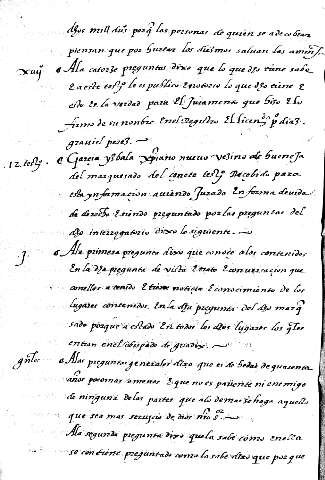 dhos mill dus porq las personas de quien se a de cobrar
piensan que por hurtar los diezmos salvan las
xiiij A la catorze preguntas dixo que lo que dho tiene sabe
E a este tesº les publico E notorio lo que dho tiene E
esto es la verdad para El Juramento que hizo E lo
firmo de su nonbre En el Registro El licenº pº diaz.
graviel perez.
12. tesº. Garcia yzbala xpiano nuevo vezino de hueneja
del marquesado del cenete tesº Recebido para
esta ynformacion aviendo Jurado En forma devida
de derecho E siendo preguntado por las preguntas del
dho interrogatorio dixo lo siguiente.
j A la primera pregunta dixo que conoce a los contenidos
En la dha pregunta de vista E trato E conversacion que
con ellos a tenido E tiene noticia E conocimiento de los
lugares contenidos. En la dha pregunta del dho marq
sado porque a estado En todos los dhos lugares los qles
entran en el obispado de guadix.
gnles A las preguntas generales dixo que es de hedad de quarenta
años poco mas o menos E que no es pariente ni enemigo
de ninguna de las partes que a lo demas se haga aquello
que sea mas servicio de dios nro sº
A la segunda pregunta dixo que la sabe como en ella
se contiene preguntado como la sabe dixo que porque